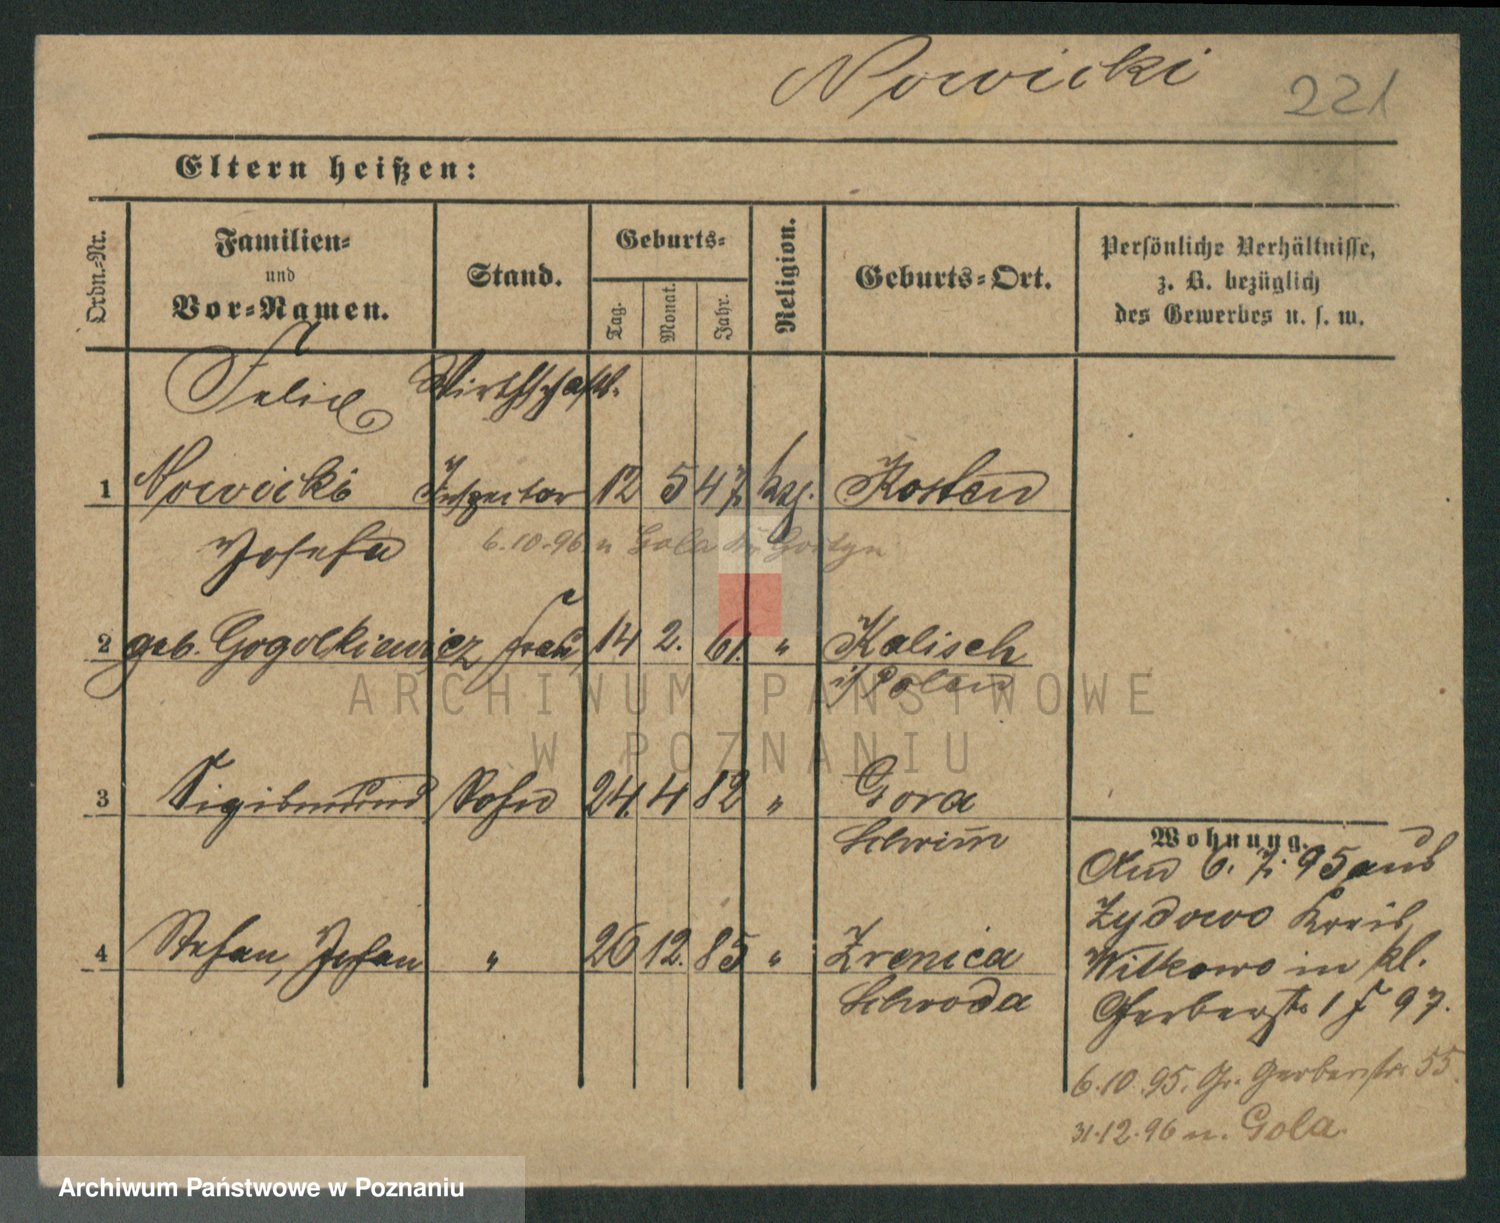 Nowicki 221
Eltern heißen:
Ordn.-Nr.
Familien-
und
Vor-Namen.
Stand.
Geburts-
Tag.
Monat.
Jahr.
Religion.
Geburts-Ort.
Persönliche Verhältnisse,
z. B. bezüglich
des Gewerbes u. s. w.
Felix Wirthschafts.
1 Nowicki Inspector 12 5 47 kg. Kosten
Josefa 6.10.96 n Gola Kr. Gostyn
2 geb. Gogolkiewicz Frau 14 2. 61. " Kalisch
i/Polen
3 Sigismund Sohn 24. 4 82 " Gora
Schrimm
4 Stefan, Johan " 26 12. 85 " Zrenica
Schroda
Wohnung.
Am 6. 7. 95 aus
Zydowo Kreis
Witkowo in kl.
Gerberstr 1 F 97.
6.10.95. Gr. Gerberstr 55.
31.12.96 n. Gola.
ARCHIWUM PAŃSTWOWE
W POZNANIU
Archiwum Państwowe w Poznaniu